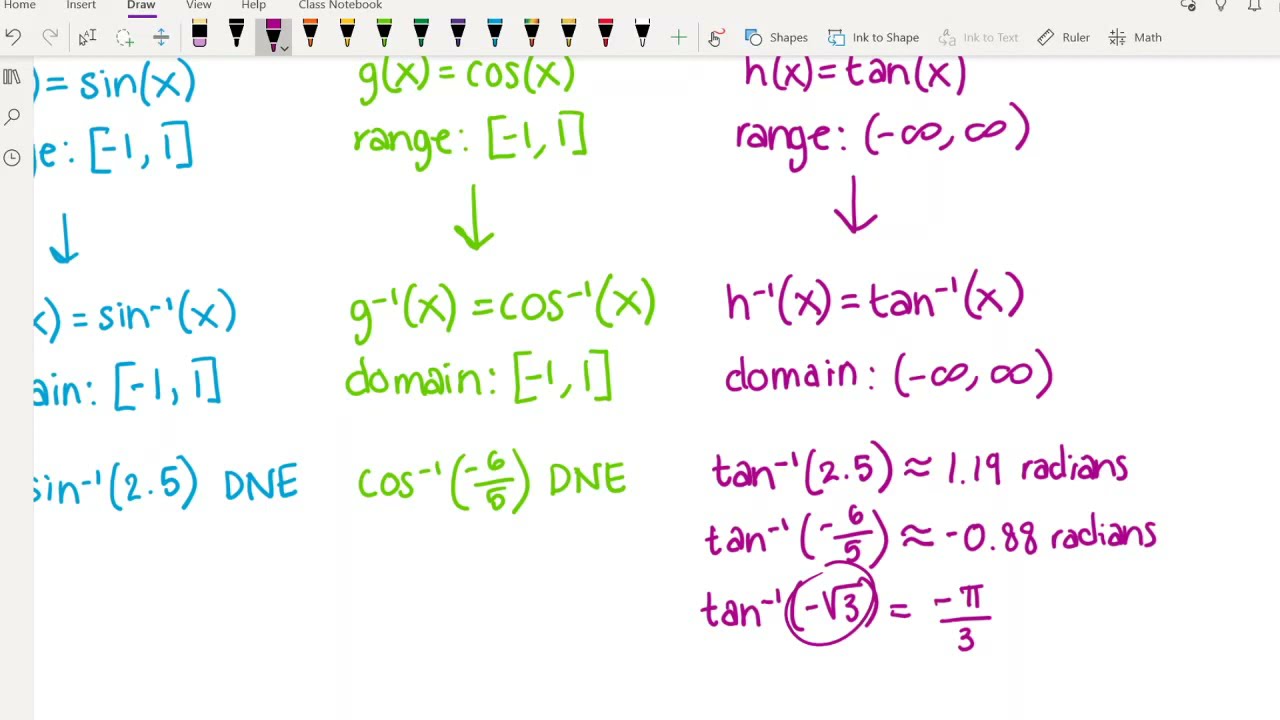 Home Insert Draw View Help Class Notebook
Shapes Ink to Shape Ink to Text Ruler Math
) = sin(x)
ge: [-1, 1]
x) = sin⁻¹(x)
ain: [-1, 1]
sin⁻¹(2.5) DNE
g(x) = cos(x)
range: [-1, 1]
g⁻¹(x) = cos⁻¹(x)
domain: [-1, 1]
cos⁻¹(-6/5) DNE
h(x) = tan(x)
range: (-∞, ∞)
h⁻¹(x) = tan⁻¹(x)
domain: (-∞, ∞)
tan⁻¹(2.5) ≈ 1.19 radians
tan⁻¹(-6/5) ≈ -0.88 radians
tan⁻¹(-√3) = -π/3